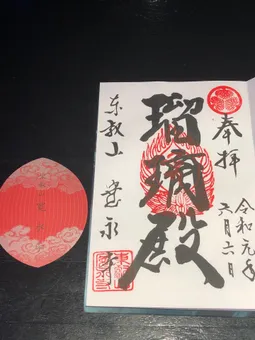 奉拝
令和元年
六月六日
瑠璃殿
東叡山 寛永寺